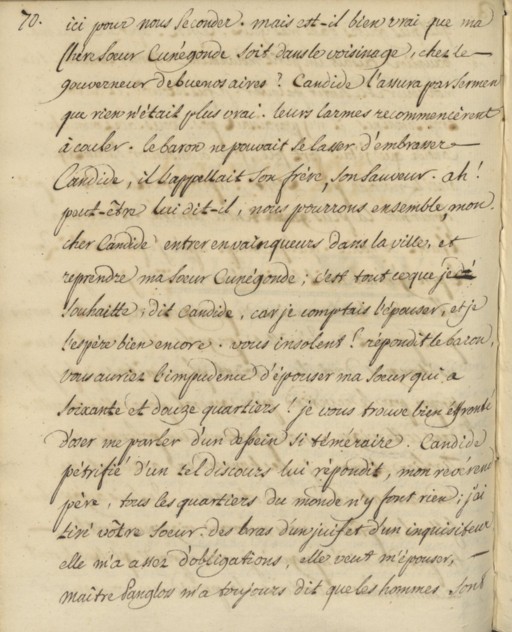 70. ici pour nous seconder. mais est-il bien vrai que ma
chere sœur Cunégonde soit dans le voisinage, chez le
gouverneur de buenos aires ? Candide l'assura par sermen
que rien n'était plus vrai. leurs larmes recommencèrent
à couler. le baron ne pouvait se lasser d'embrasser
Candide, il l'appellait son frère, son sauveur. ah !
peut-être lui dit-il, nous pourrons ensemble, mon
cher Candide entrer en vainqueurs dans la ville, et
reprendre ma sœur Cunégonde ; c'est tout ce que je
souhaitte, dit Candide, car je comptais l'épouser, et je
l'espère bien encore. vous insolent ! répondit le baron,
vous auriez l'impudence d'épouser ma sœur qui a
soixante et douze quartiers ! je vous trouve bien effronté
d'oser me parler d'un dessein si téméraire. Candide
pétrifié d'un tel discours lui répondit, mon reverend
père, tous les quartiers du monde n'y font rien ; j'ai
tiré vôtre soeur des bras d'un juif et d'un inquisiteur
elle m'a assez d'obligations, elle veut m'épouser,
maître Pangloss m'a toujours dit que les hommes sont